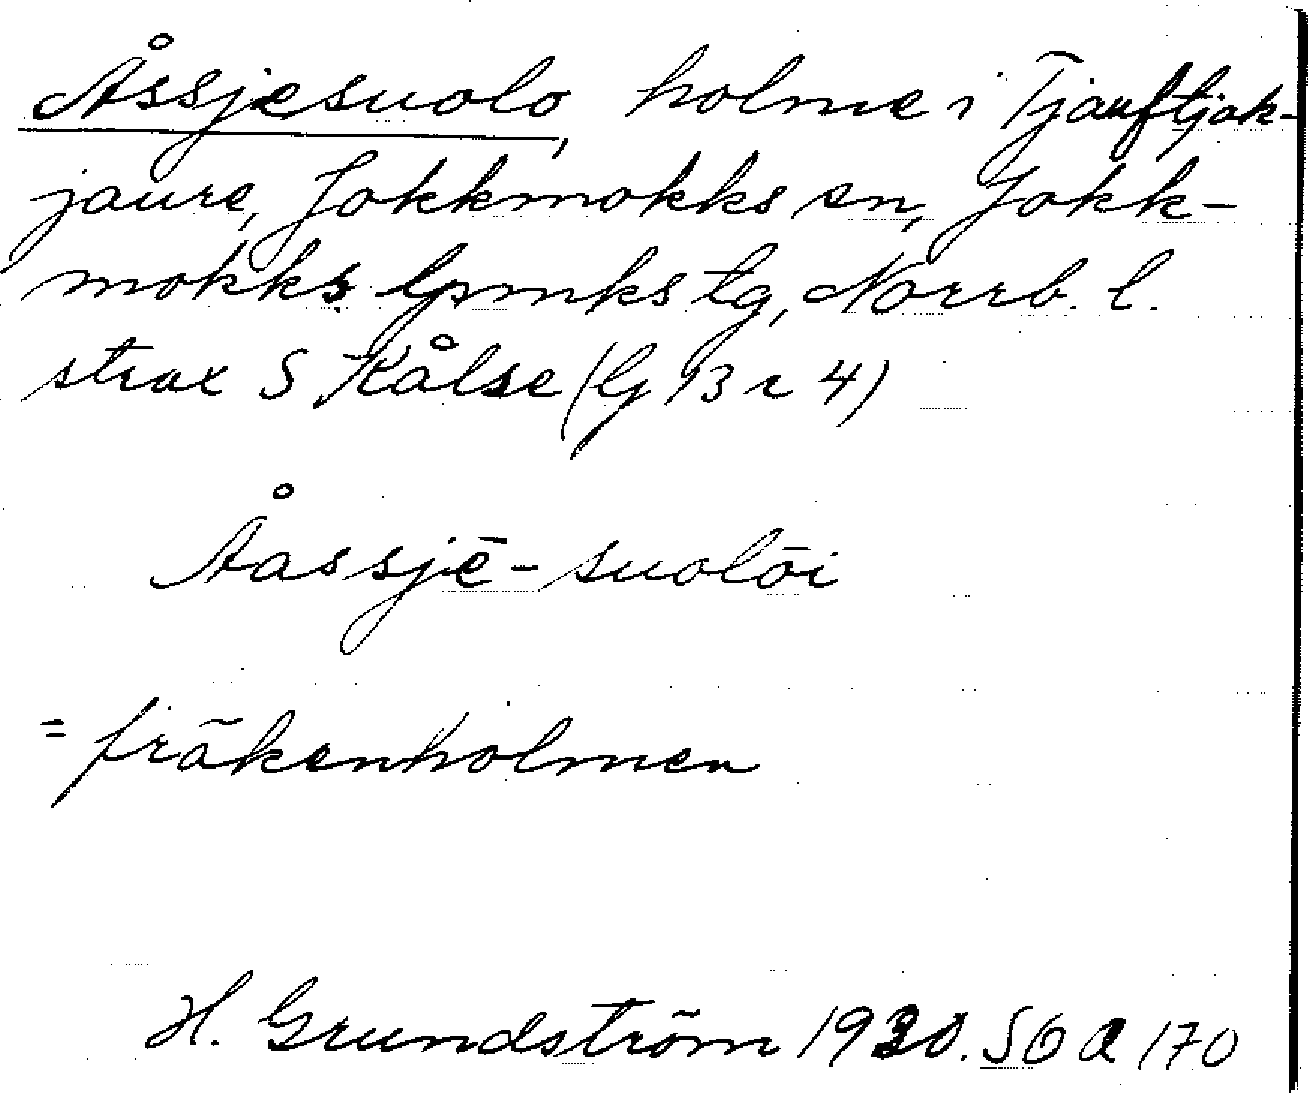 Åssjesuolo, holme i Tjauftjak-
jaure, Jokkmokks sn, Jokk-
mokks lpmks tg, Norrb. l.
strax S Kålse (lj 13 r 4)
Åassjē-suolōi
= fräkenholmen
H. Grundström 1930. S6a 170